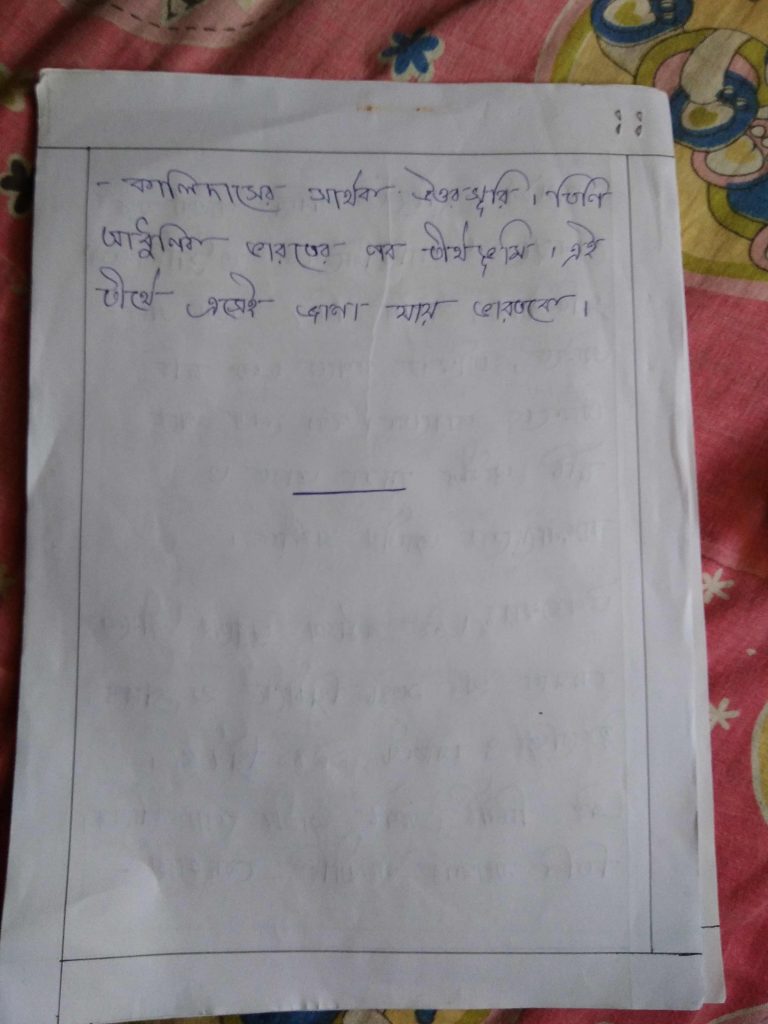 ১১
- কালিদাসের সার্থক উত্তরসূরি। তিনি
আধুনিক ভারতের নব তীর্থভূমি। এই
তীর্থে এসেই জানা যায় ভারতকে।